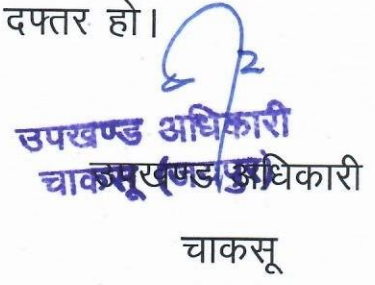 दफ्तर हो।
उपखण्ड अधिकारी
चाकसू (जयपुर)
उपखण्ड अधिकारी
चाकसू